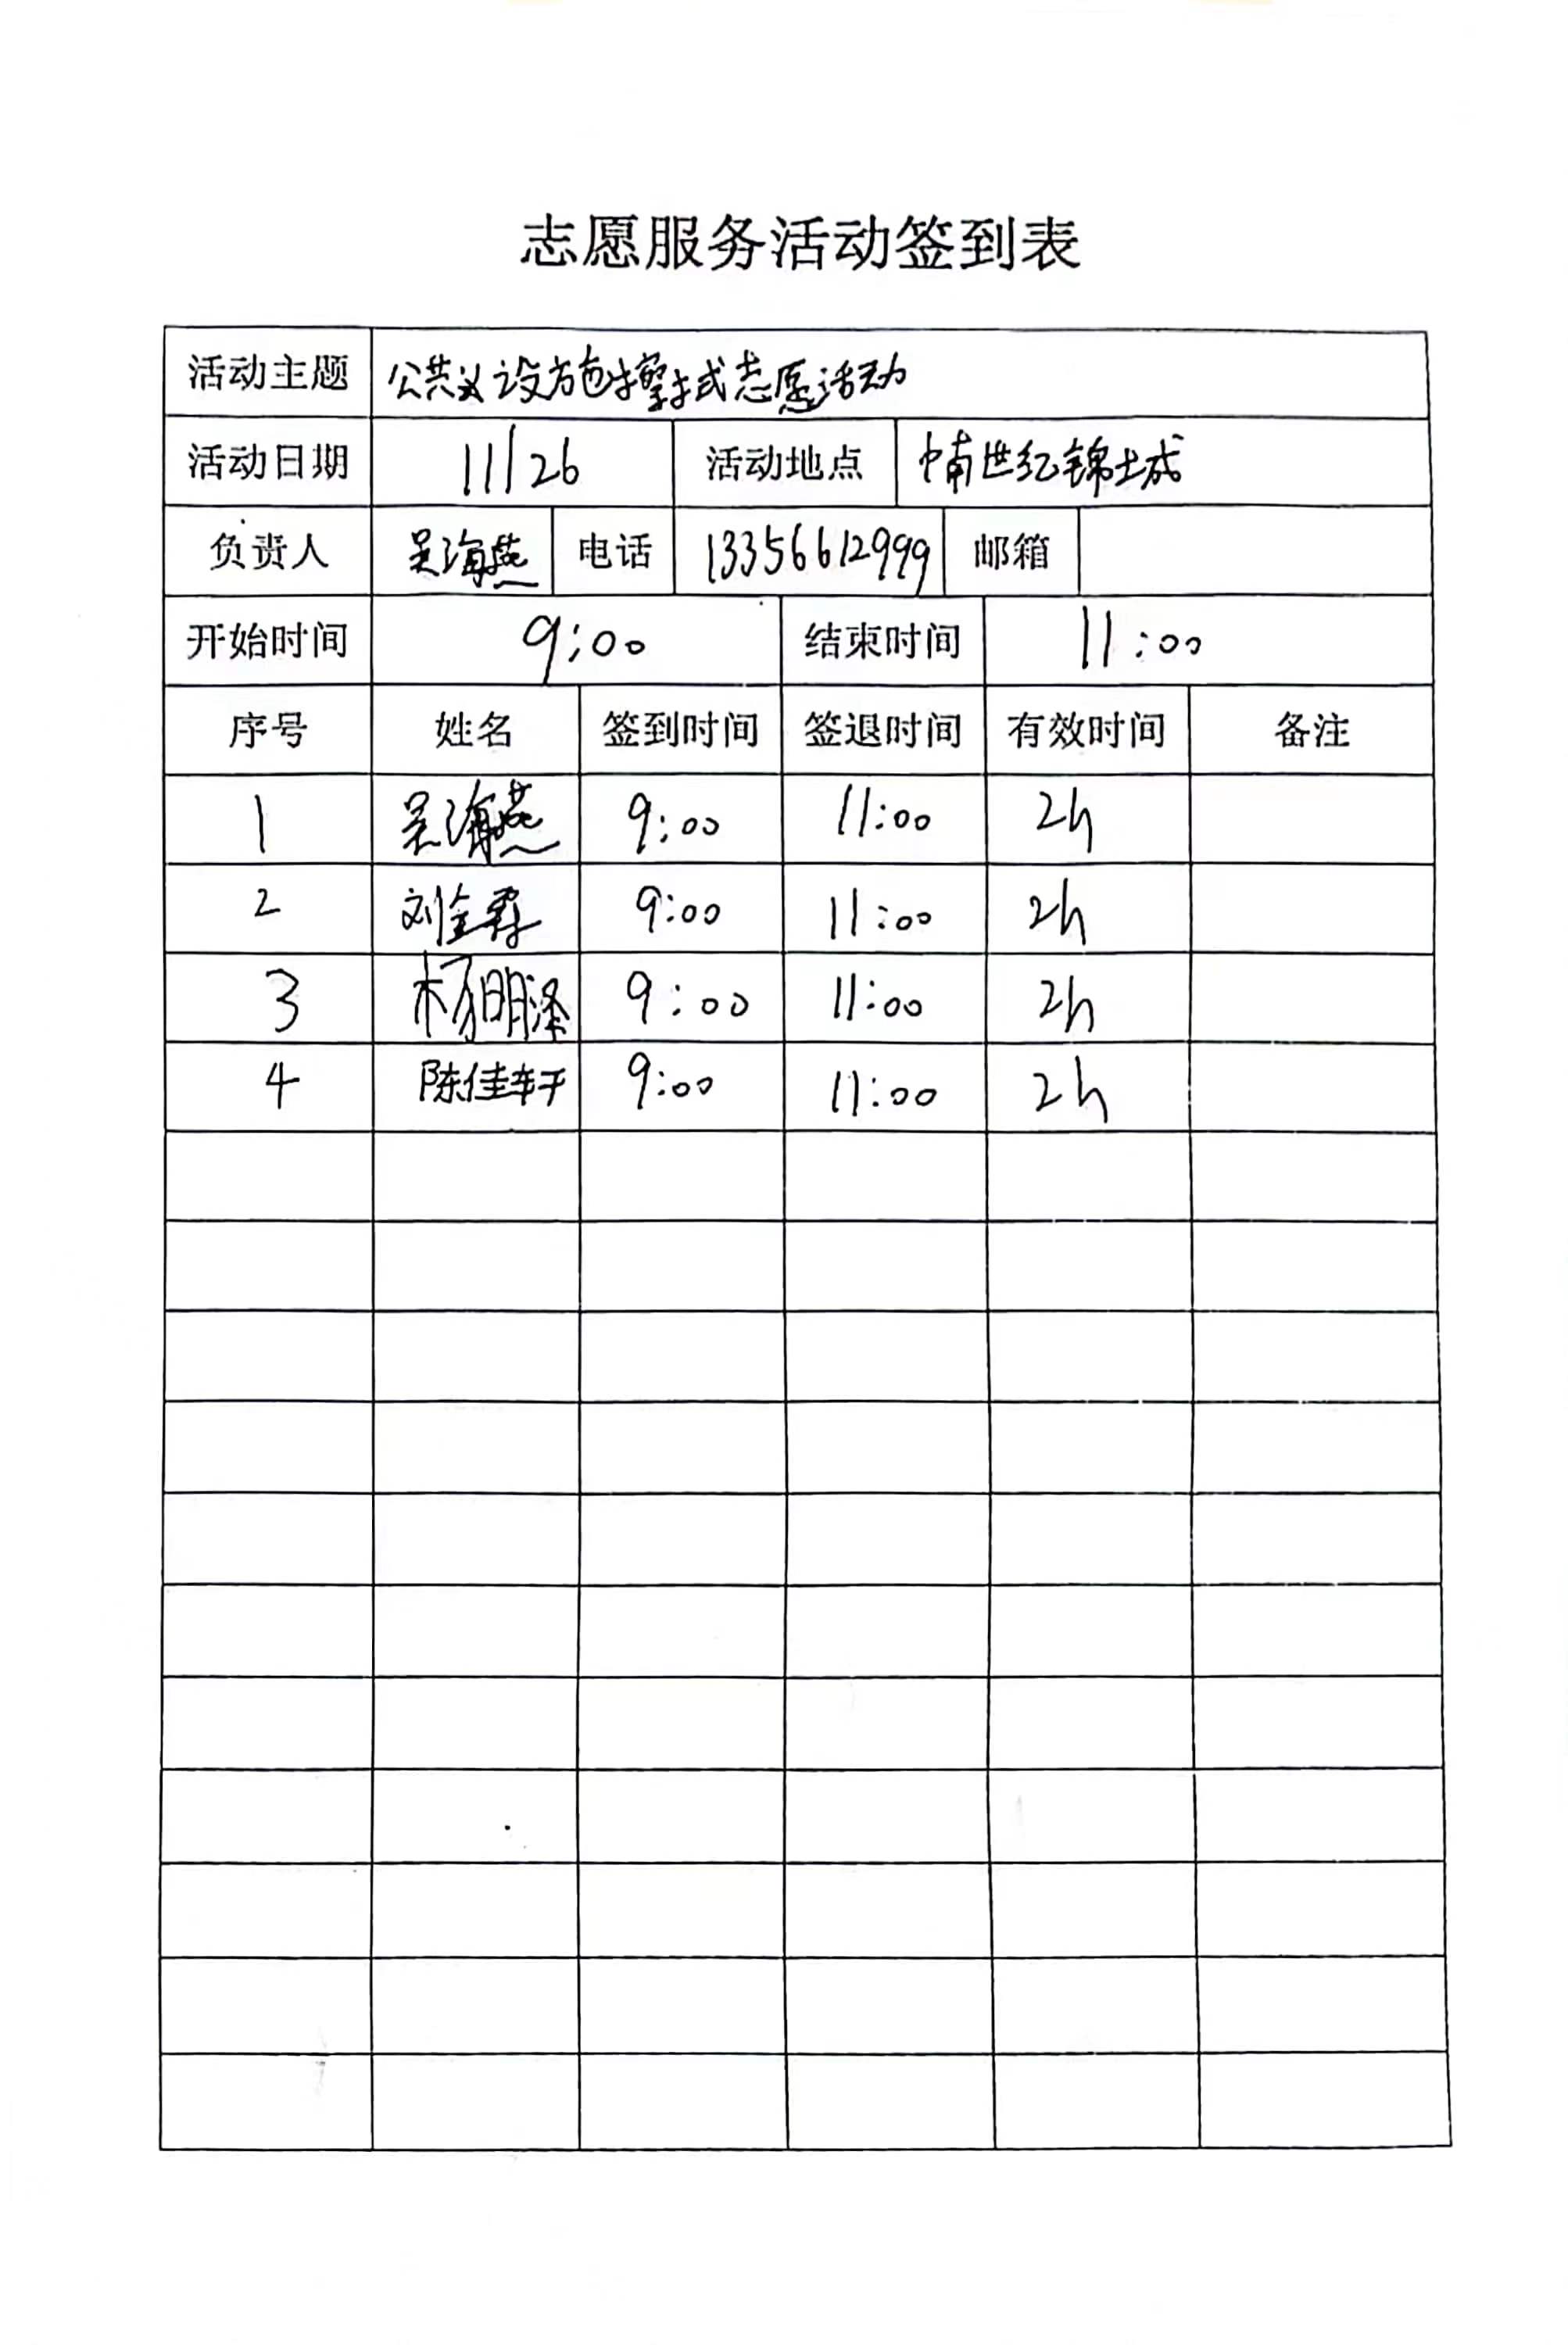 志愿服务活动签到表
活动主题 公共设施擦拭志愿活动
活动日期 11/26 活动地点 中南世纪锦城
负责人 吴海燕 电话 13356612999 邮箱
开始时间 9:00 结束时间 11:00
序号 姓名 签到时间 签退时间 有效时间 备注
1 吴海燕 9:00 11:00 2h
2 刘 9:00 11:00 2h
3 杨明泽 9:00 11:00 2h
4 陈佳轩 9:00 11:00 2h